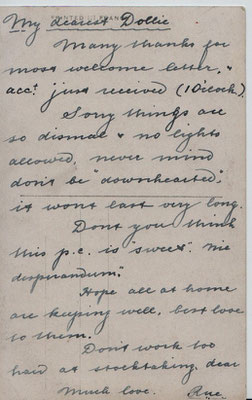 My dearest Dollie
Many thanks for
most welcome letter, "
acct. just received (1 O'clock)
Sorry things are
so dismal & no lights
allowed, never mind
don't be "downhearted",
it wont last very long.
Dont you think
this p.c. is "sweet". "Nie
desperandum."
Hope all at home
are keeping well, best love
to them.
Don't work too
hard at stocktaking, dear
Much love.